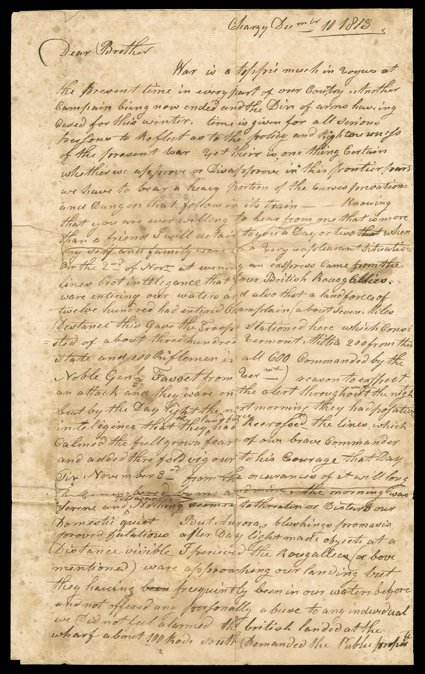 Chazy Decmbr 10 1813
Dear Brother
War is a toppic much in vogue at
the present time in every part of our Country. Another
Campain being now ended and the Din of arms having
Ceased for this winter. time is given for all Serious
persons to Reflect as to the policy and rightousness
of the present war Yet their is one thing Certain
whether we approve or Disapprove in this frontier part
we have to bear a heavy portion of the Curses privations
and Danger that follow in its train — Knowing
that you are ever willing to hear from one that is more
than a friend I will detain you a Day or two when
my self and family were in a very unpleasant Situation
on the 2nd of Novr. at evening an express came from the
lines brot intelegence that four British Rowgallies
were entering our waters and also that a land force of
twelve hundred had entered Champlain, about seven Miles
Distance this Gave the troops stationed here which Consi
sted of about three hundred Vermont Militia 200 from this
State and 100 Riflemen in all 600 Commanded by the
Noble Genl. Fawset from Vermt) reason to expect
an attack and they ware on the alert throughout the night
but by the Day light the next morning they had positive
inteligence that they had Recrossed the lines which
Calmed the full grown fear of our brave Commander
and added ten fold vigour to his Courage that Day
viz. November 3d from the occurances of it will long
the morning was
Serene and Nothing seemed to threaten or Disturb our
Domestic quiet But Aurora, blushing promasis
proved falatious after Day light made objects at a
Distance visible I perceived the Rowgallies (above
mentioned) ware approaching our landing but
they haveing been frequently been in our waters before
and not offered any personally abuse to any individual
we Did not feel alarmed The british landed at the
wharf about 100 Rods South Demanded the Public property